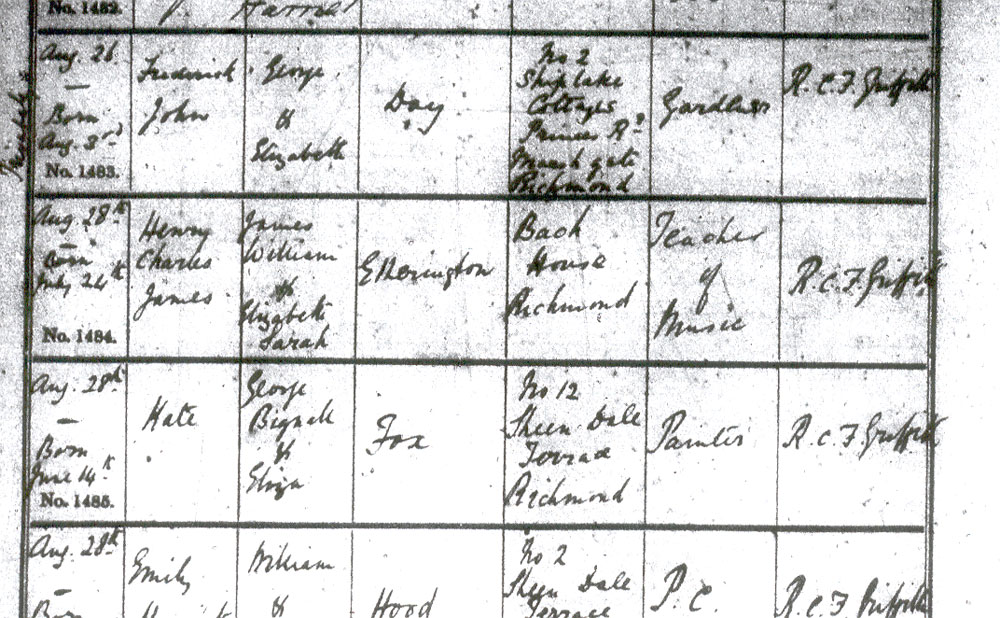 No. 1482.
Harriet
Aug. 26
—
Born
Aug. 3rd
No. 1483.
Frederick
John
George
&
Elizabeth
Day
No 2
Shiplake
Cottages
Princes Rd
Marsh gate
Richmond
Gardener
R.C.F. Griffith
Aug. 28th
—
Born
July 24th
No. 1484.
Henry
Charles
James
James
William
&
Elizabeth
Sarah
Etherington
Back
House
Richmond
Teacher
of
Music
R.C.F. Griffith
Aug. 28th
—
Born
June 14th
No. 1485.
Kate
George
Bignall
&
Eliza
Fox
No 12
Sheen Dale
Terrace
Richmond
Painter
R.C.F. Griffith
Aug. 28th
—
Born
Emily
William
&
Hood
No 2
Sheen Dale
Terrace
P.C.
R.C.F. Griffith